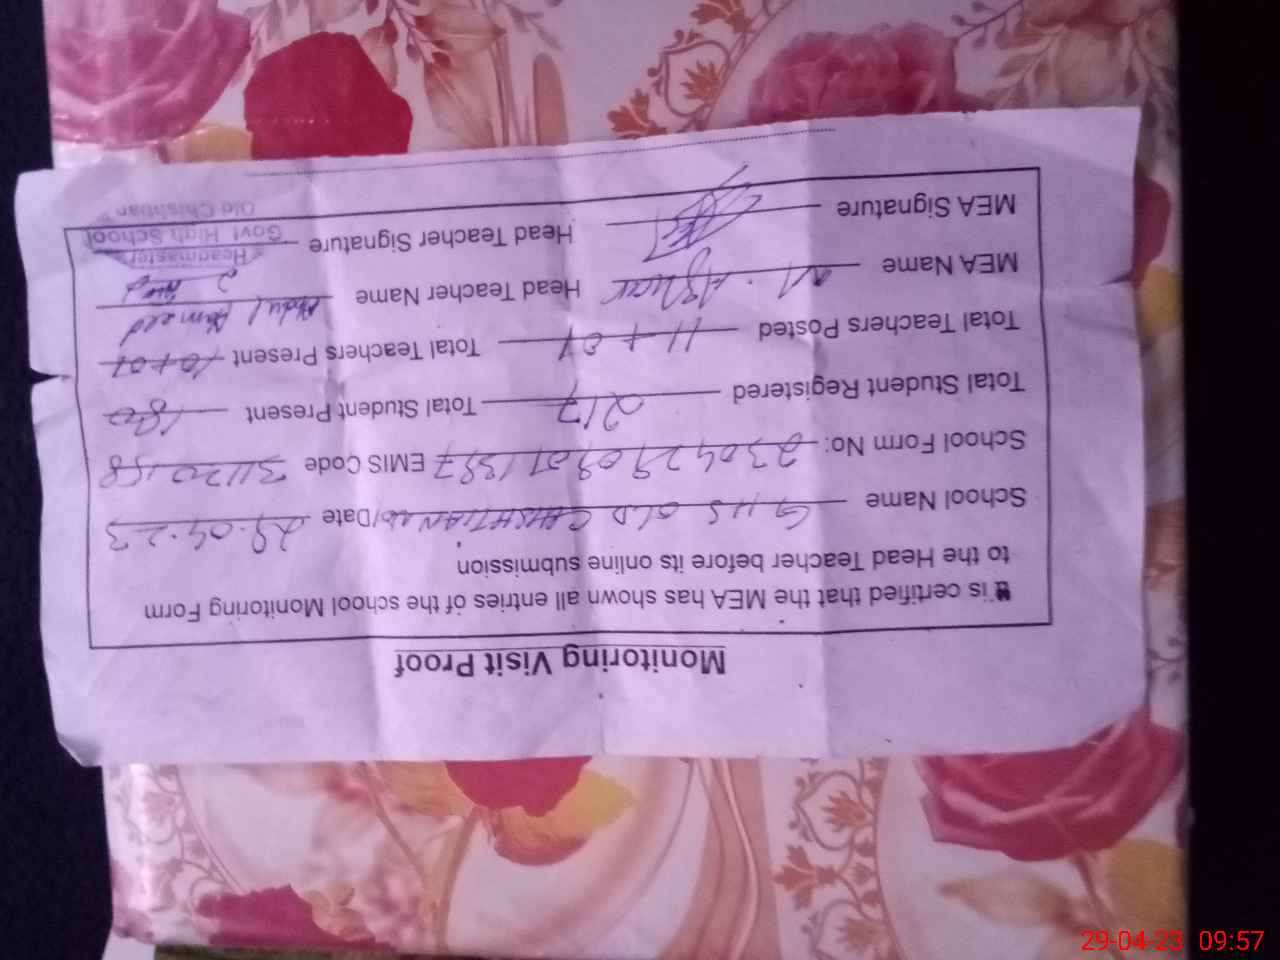 Monitoring Visit Proof
It is certified that the MEA has shown all entries of the school Monitoring Form
to the Head Teacher before its online submission
School Name GHS OLD CHISHTIAN Date 29.04.23
School Form No: EMIS Code 31120158
Total Student Registered 217 Total Student Present 180
Total Teachers Posted 11+01 Total Teachers Present 10+01
MEA Name M. Head Teacher Name Abdul Hameed
MEA Signature Head Teacher Signature
Headmaster
Govt High School
Old Chishtian
29-04-23 09:57